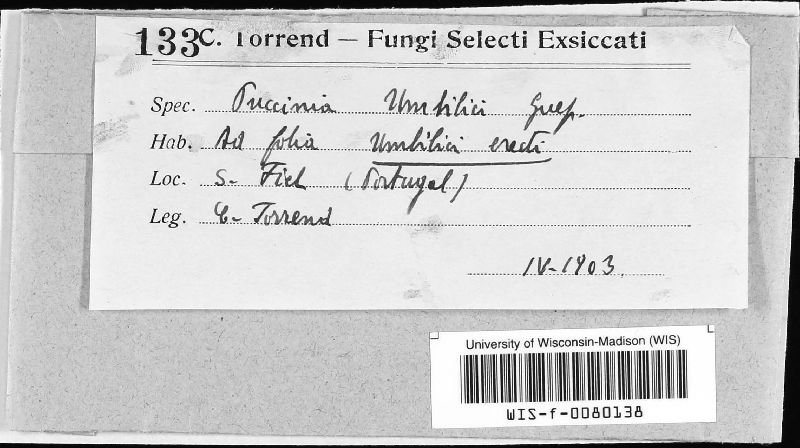 133 C. Torrend — Fungi Selecti Exsiccati
Spec. Puccinia Umbilici Guep.
Hab. Ad folia Umbilici erecti
Loc. S. Fiel (Portugal)
Leg. C. Torrend
IV-1903.
University of Wisconsin-Madison (WIS)
WIS-f-0080138